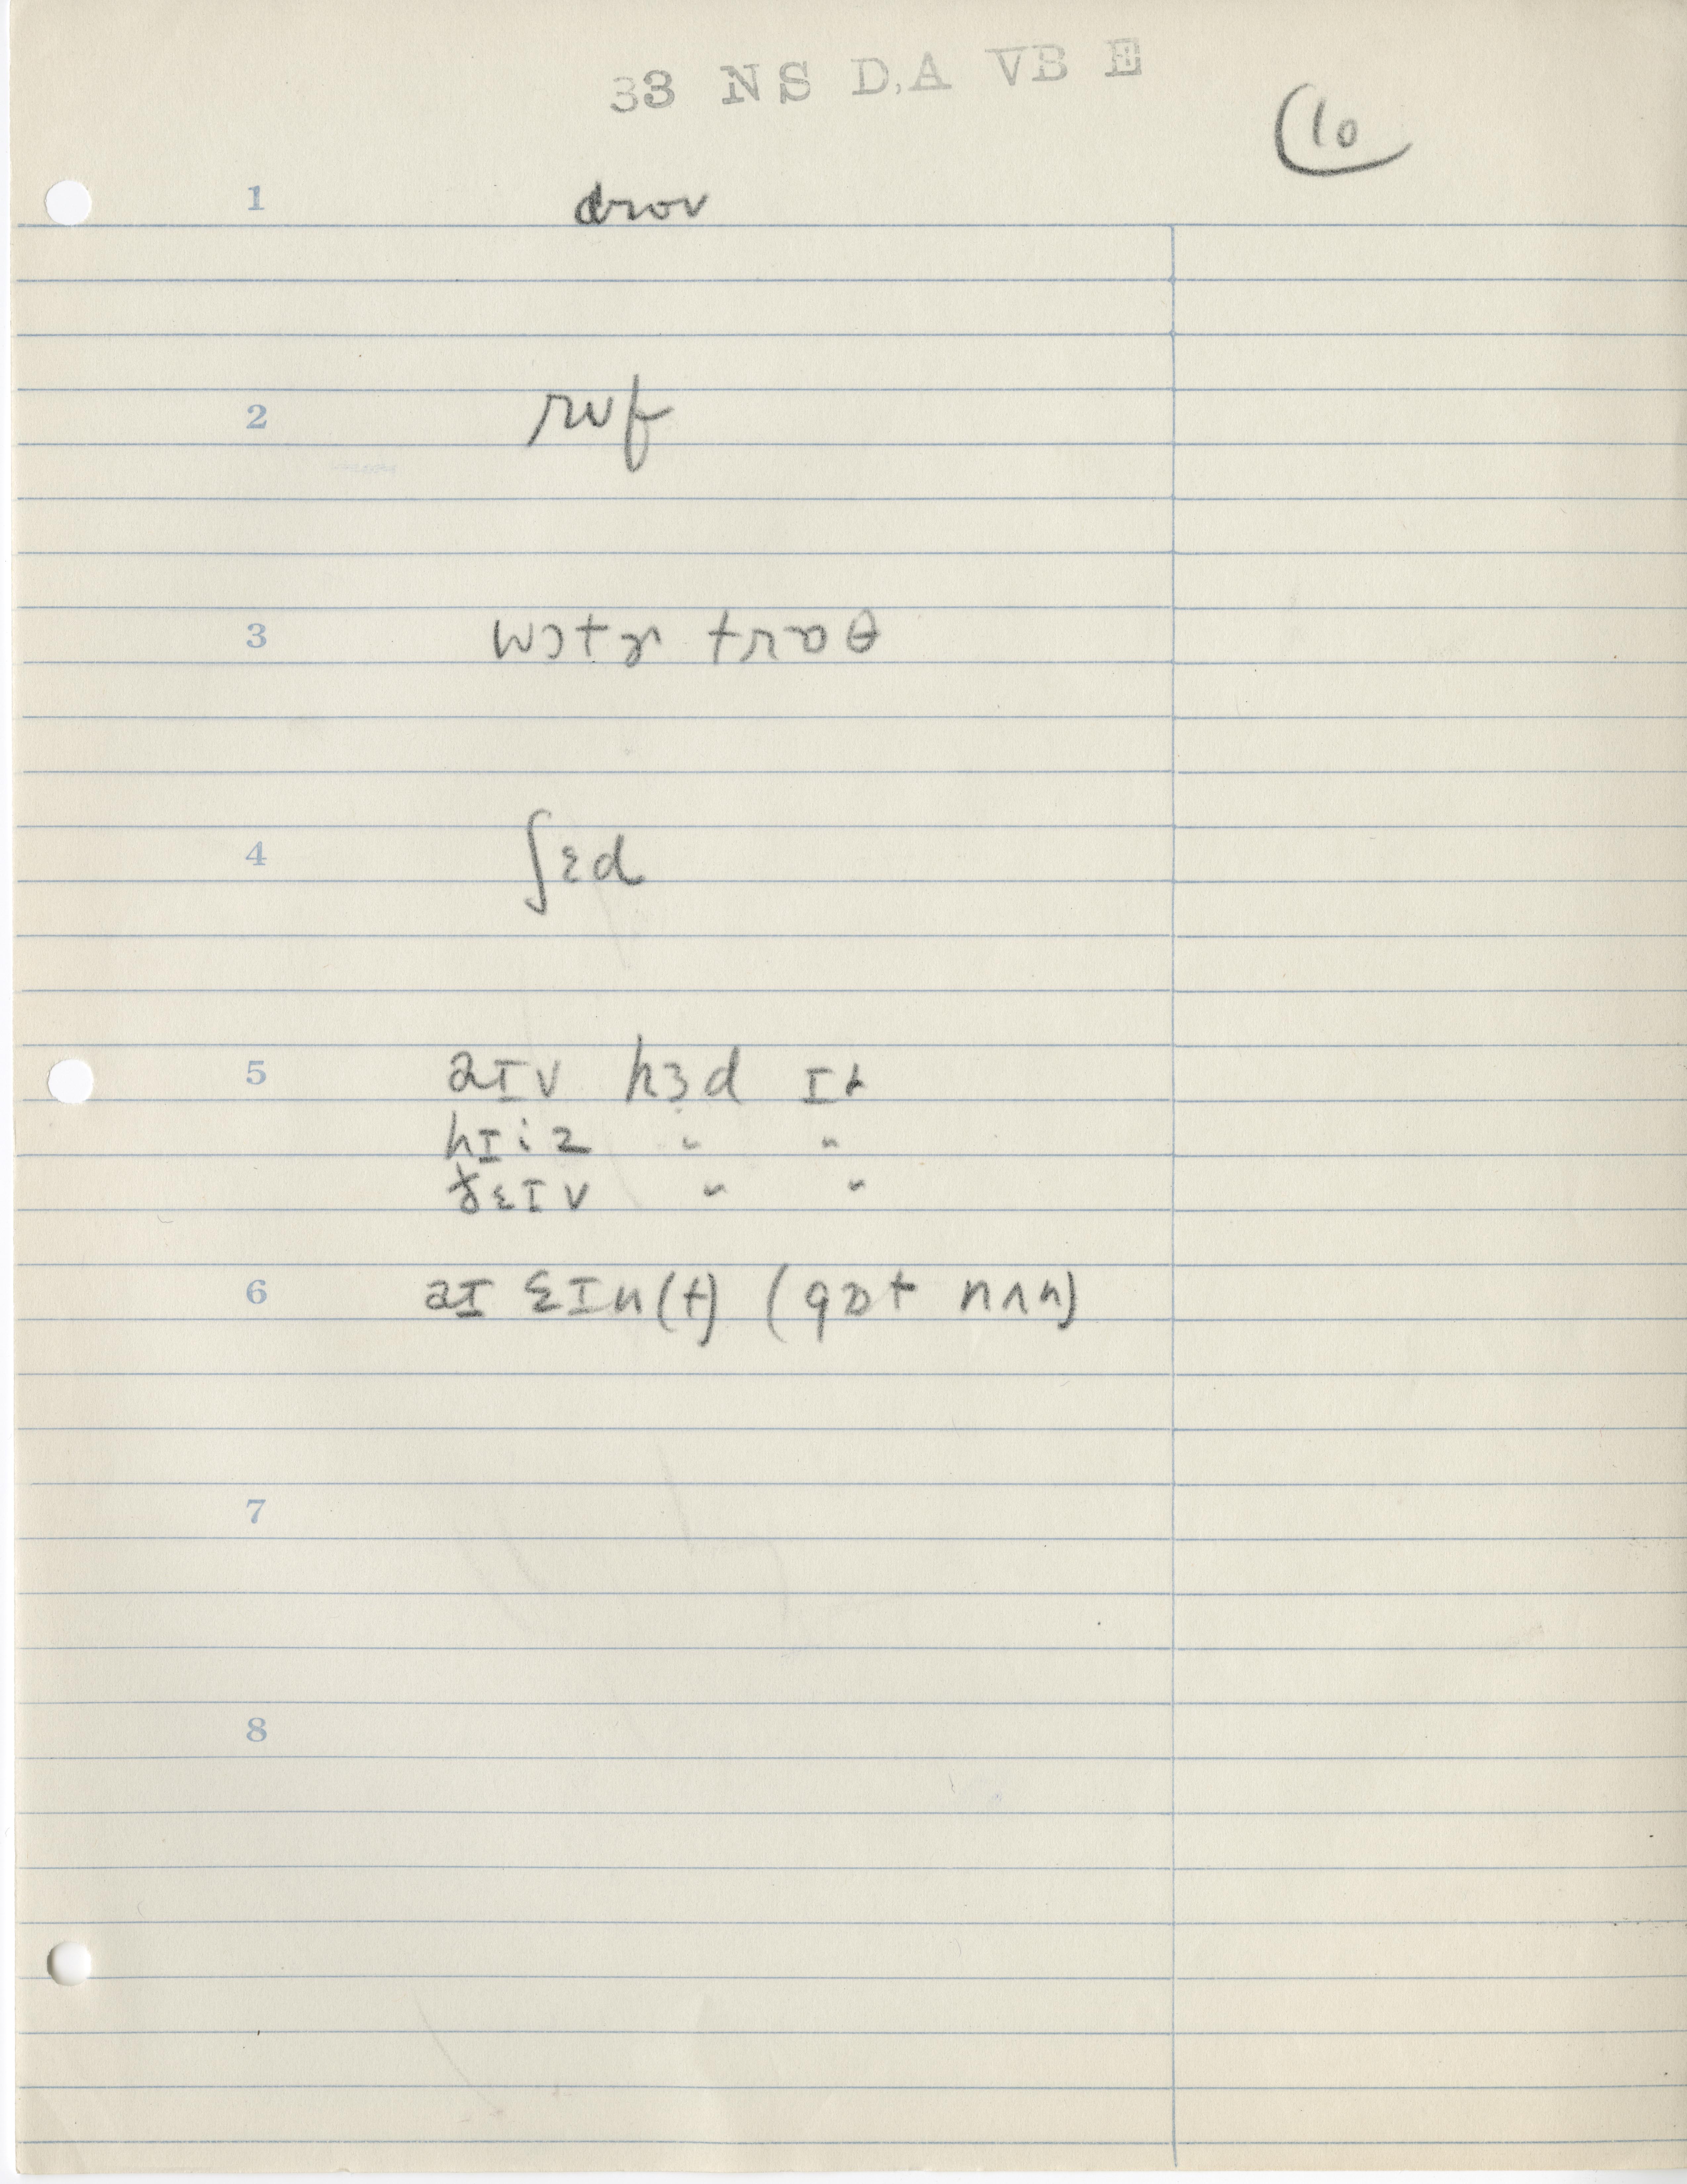 33 NS D.A VB E
10
1 drov
2 rʋf
3 wɔtɚ trɔθ
4 ʃɛd
5 aɪv hɜd ɪt
hɪiz " "
ðɛɪv " "
6 aɪ ɛɪn(t) (gɒt nʌn)
7
8